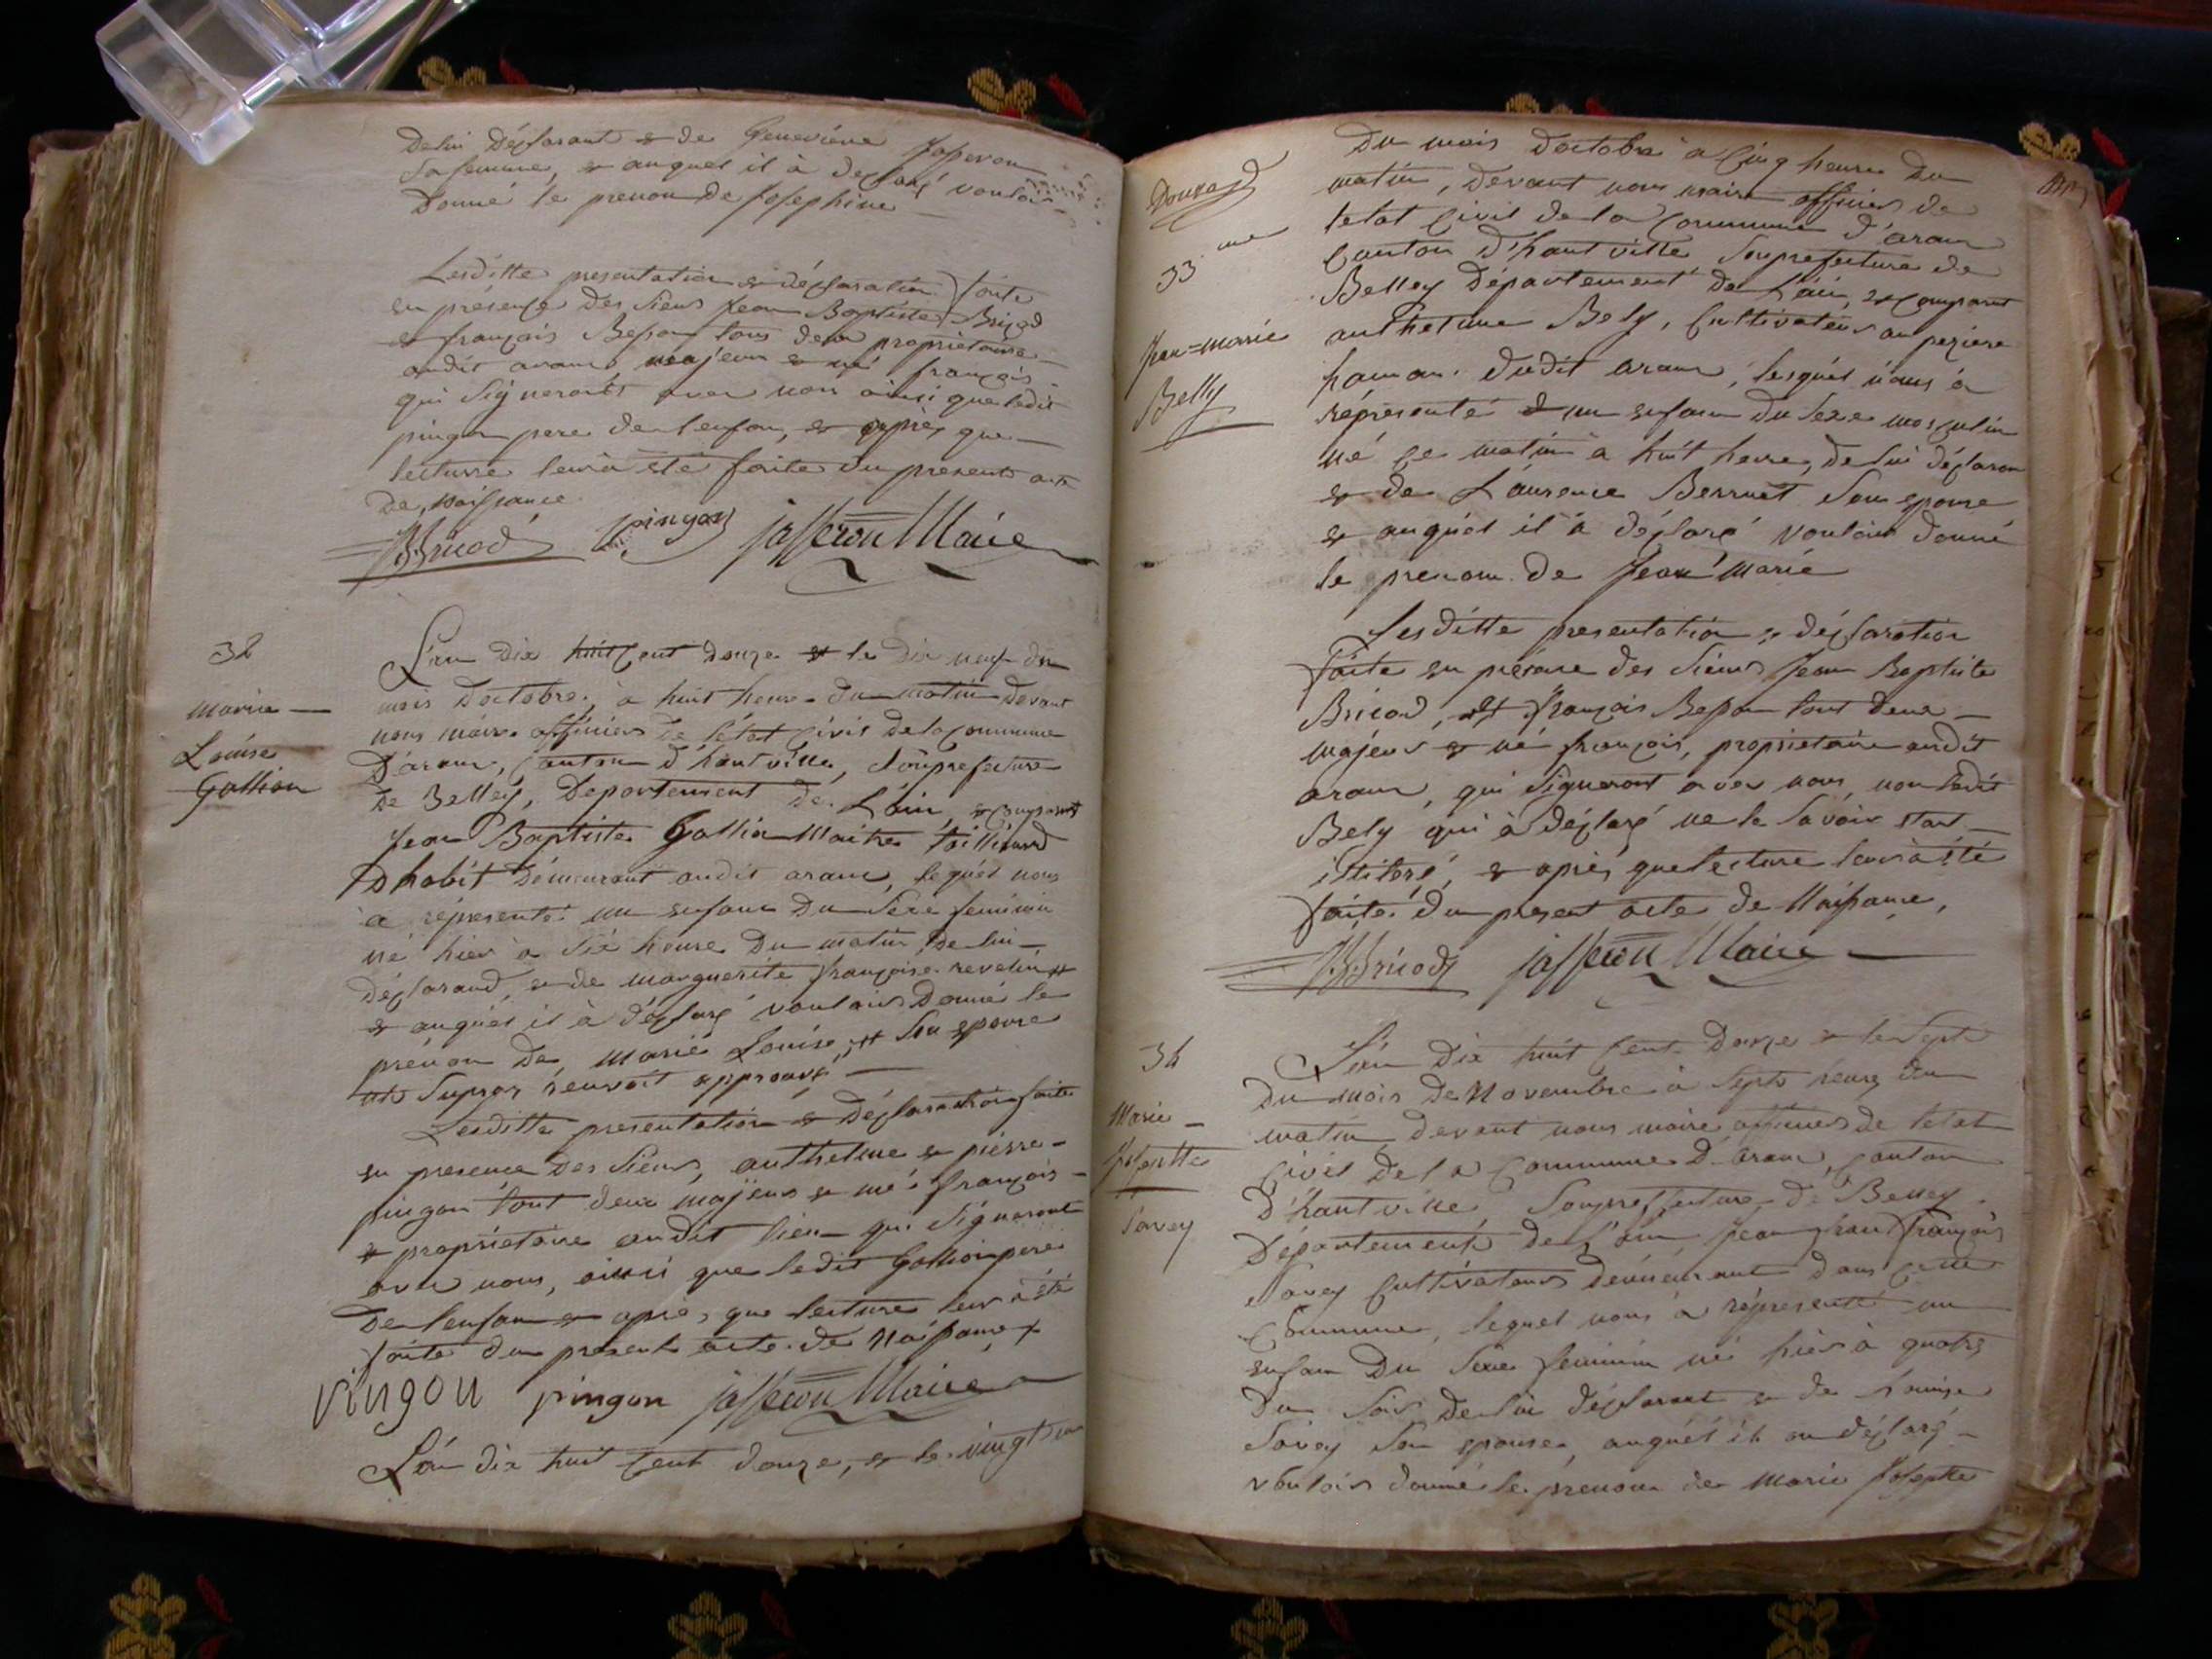 Delui Déclarant & de Genevieve Jasseron
Sa femme, & auquel il à declaré vouloir
Donné le prenom de Josephine
Lesditte presentation & déclaration faite
en présence des Sieurs Jean Baptiste Bricod
& françois Besson tous deux propriétaire
audit aranc, majeur & né français
qui Signeronts avec nous ainsi que ledit
pingon pere de lenfan, & après que
lecturre leur à été faite du present acte
De, Naissance.
JBBricod pingon jasseron Maire
32
Marie
Louise
Gallion
L'an Dix huit Cent douze & le Dix neuf du
mois Doctobre, à huit heure du matin devant
nous maire officiers de létat Civil de la Commune
D'aranc, Canton d'hautville, Souprefecture
de Belley, Departement de L'ain, & Comparut
Jean Baptiste Gallion Maitre tailleurd
Dhabit Démeurant audit aranc, lequél nous
à répresenté un enfans Du Sexe feminin
né hier à Six heure Du matin, de lui
déclarand, & de marguerite françoise revelin #
& auquél il à déclaré vouloir Donné le
prénom De, Marie Louise, # Son epouse
Supron renvoit approuvé
Lesditte presentation & Déclaration faite
en presence Des Sieurs, anthelme & pierre
pingon tout deux majeurs & né français
& propriétaire audit lieu qui Signeront
avec nous, ainsi que ledit Gallion pere
De lenfan & apres, que lecture leur à été
faite du present acte de Naissance
pingon pingon jasseron Maire
L'an dix huit Cent douze, & le vingt un
Du mois Doctobre à Cinq heure Du
matin, devant nous maire officiers de
letat Civil de la Commune d'aranc
Canton d'hautville, Souprefecture de
33 me
Belley Département de L'ain, & Comparut
Jean=marie
Belly
anthelme Bely, Cultivateur
dudit aranc, lesquél nous à
répresenté un enfans du Sexe masculin
né ce matin a huit heure, de lui déclaran
& de Laurence Berruet Son epouse
& auquél il à déclaré vouloir donné
le prenom de Jean Marie
Lesditte presentation & déclaration
faite en présence des Sieurs Jean Baptiste
Bricod, & françois Besson tout deux
majeurs & né français, propriétaire audit
aranc, qui Signeront avec nous, non ledit
Bely qui à déclaré ne le Savoir etant
illitéré, & après que lecture leur à été
faite du present acte de Naissance,
JBBricod jasseron Maire
34
Marie
Josephte
Savey
L'an Dix huit Cent Douze & le Sept
Du mois De Novembre à Sept heure du
matin devant nous maire officiers de letat
Civil de la Commune D'aranc, Canton
D'hautville, Souprefecture de Belley
Département de L'ain, Jean françois
Savey Cultivateur démeurant dans cette
Commune, lequel nous à répresenté un
enfan Du Sexe feminin né hier à quatre
du Soir, de lui déclarant & de Louise
Savey Son epouse, auquél il on déclaré
vouloir donné le prenom de Marie Josephte